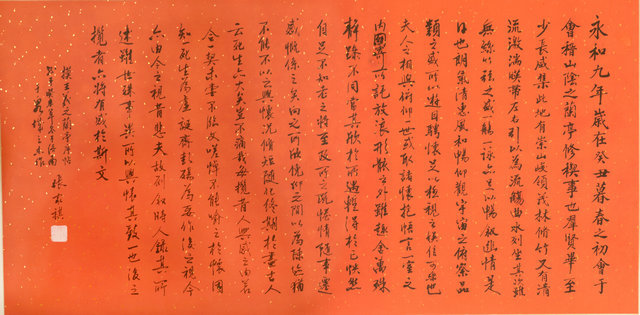 永和九年歲在癸丑暮春之初會于
會稽山陰之蘭亭修稧事也群賢畢至
少長咸集此地有崇山峻領茂林修竹又有清
流激湍暎帶左右引以為流觴曲水列坐其次雖
無絲之盛一觴一詠足以暢叙幽情是
日也朗氣清惠風和暢仰觀宇宙之俯察品
類之盛所以遊目騁懷足以極視之娛信可樂也
夫人之相與俯仰一世或取諸懷抱悟言一室之
內所託放浪形骸之外雖趣舍萬殊
靜躁不同當其欣於所遇暫得於己怏然
自足不知老之將至及其所之既惓情隨事遷
感慨係之矣向之所欣俛仰之間以為陳迹猶
不能不以之興懷況脩短隨化終期於盡古人
云死生亦大矣豈不痛哉每攬昔人興感之由若
合一契未嘗不臨文嗟悼不能喻之於懷固
知一死生為虛誕齊彭殤為妄作後之視今
亦由今之視昔悲夫故列叙時人錄其所
述雖世殊事異所以興懷其致一也後之
攬者亦將有感於斯文
王羲之蘭亭序